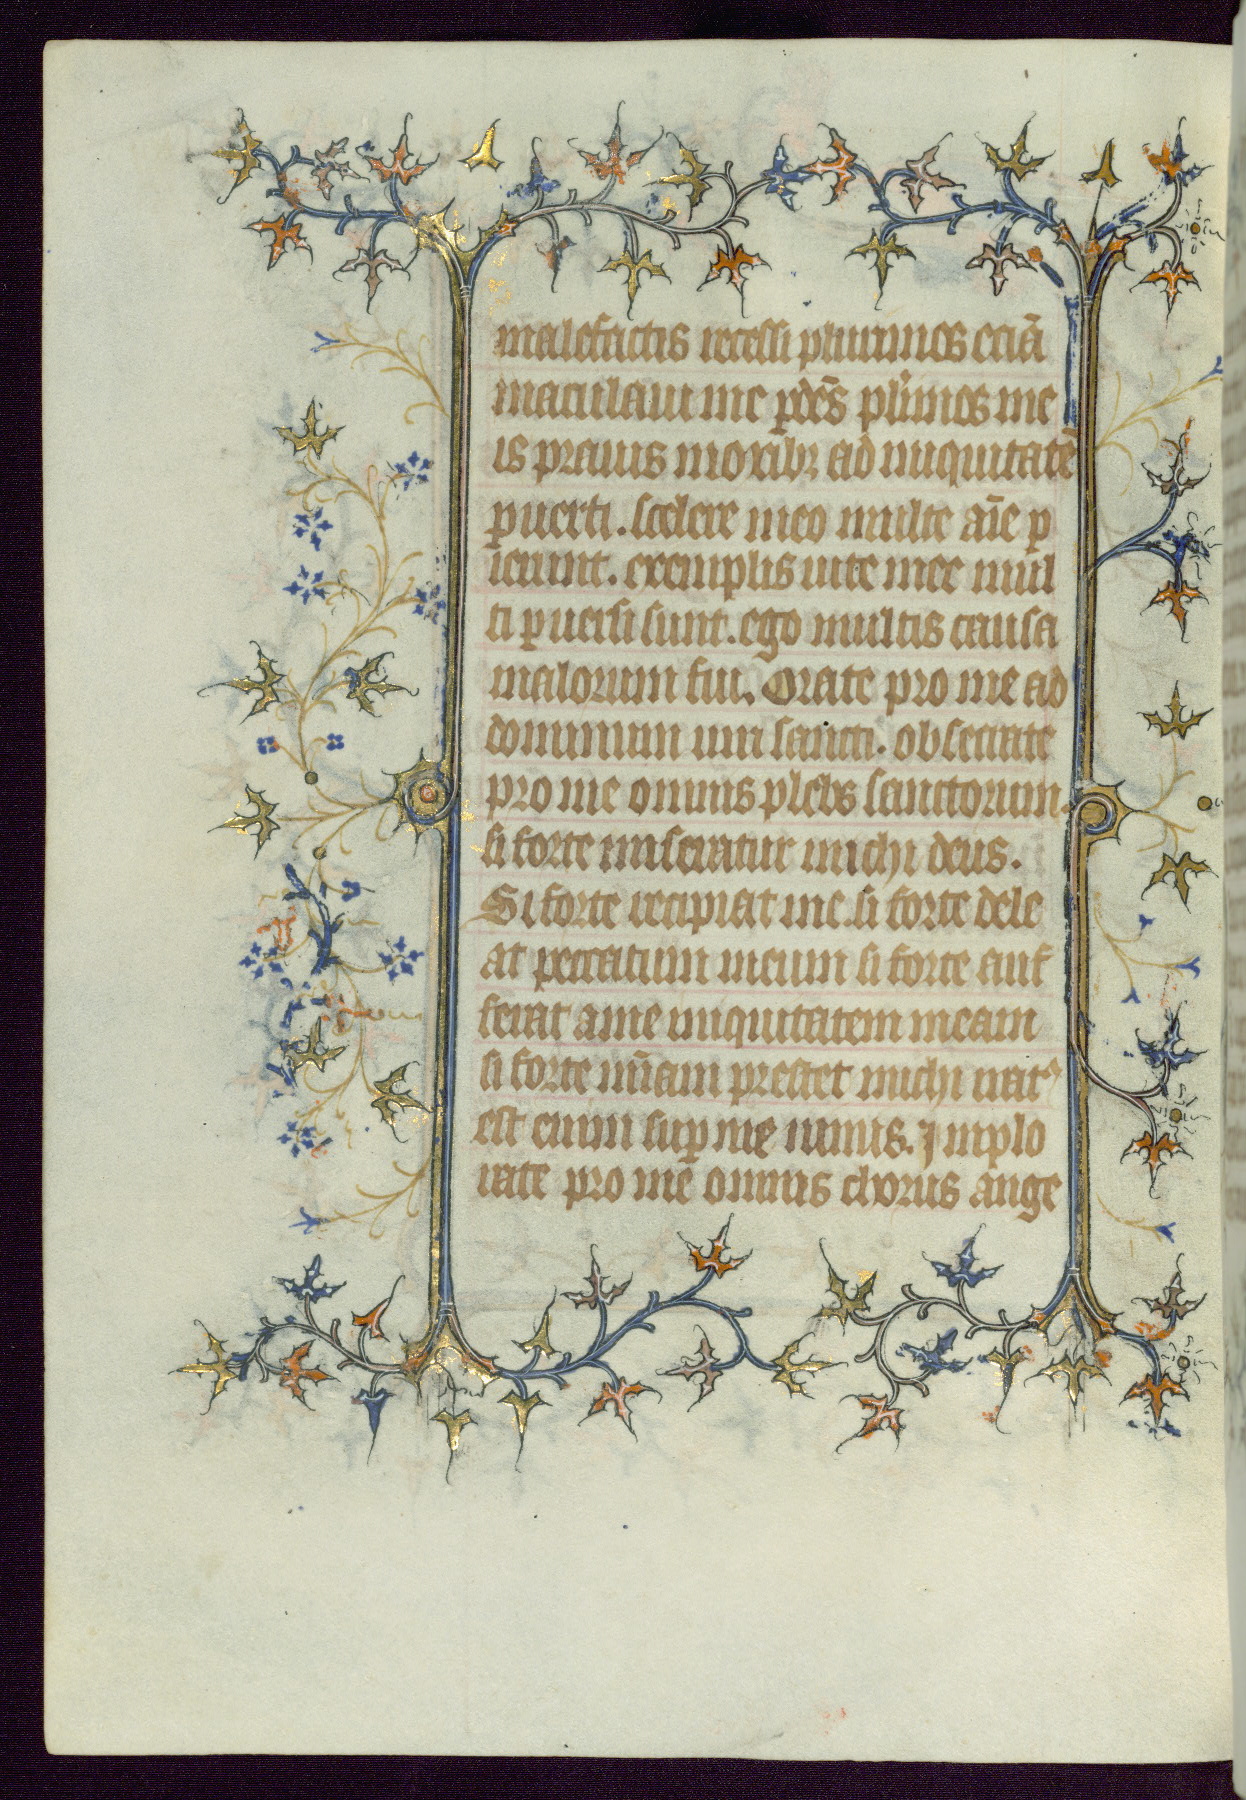 malefactis recessi plurimos eciā
maculaui me ꝑdēs plimos me
is prauis moribꝫ ad iniquitatē
ꝑuerti. scelere meo multe aīe ꝑ
ierunt. exemplis uite mee mul
ti ꝑuersi sunt. ego multis causa
malorum fui. Orate pro me ad
dominum uiri sancti. obsecrate
pro me omnis plebs sanctorum.
si forte misereatur michi deus.
Si forte recipiat me. si forte dele
at peccatum meum si forte auf
ferat a me iniquitatem meam
si forte mīam prestet michi irat᾿
est enim suꝑ me nimis. Implo
rate pro me omnis chorus ange